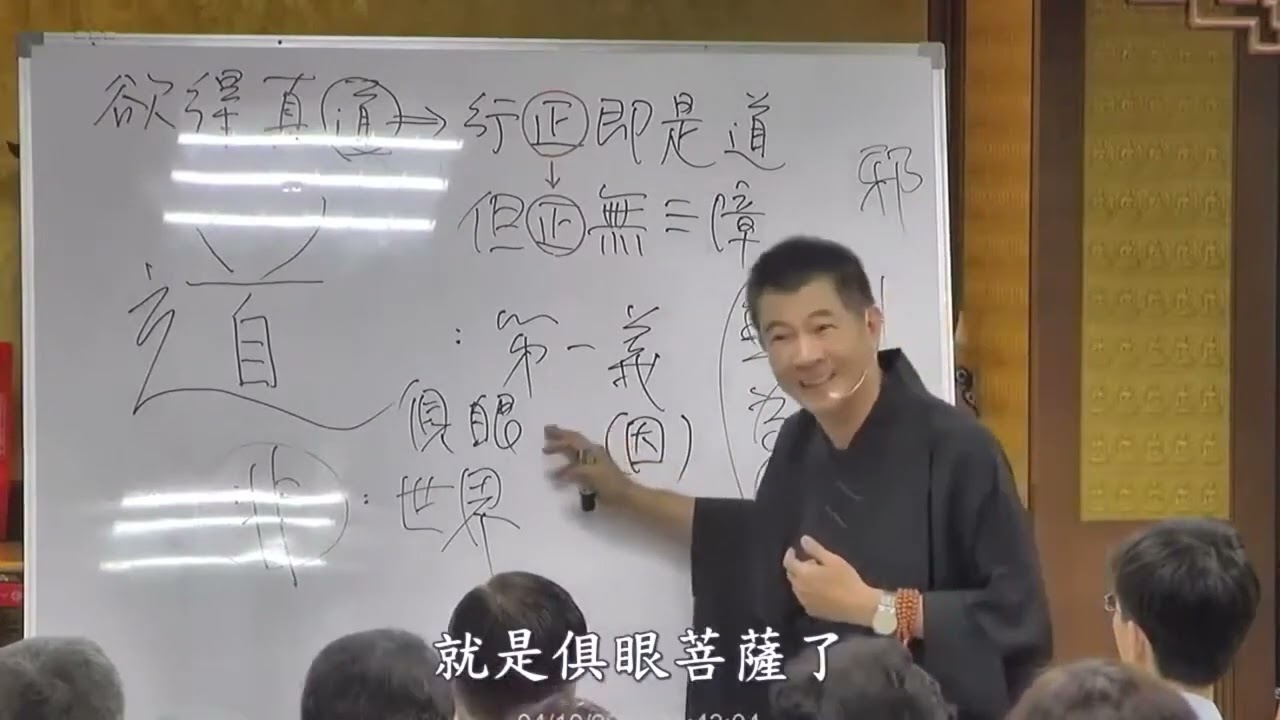 欲得真道→行正即是道
↓
但正無三障
邪
道：第一義
俱眼（因）
非：世界
就是俱眼菩薩了